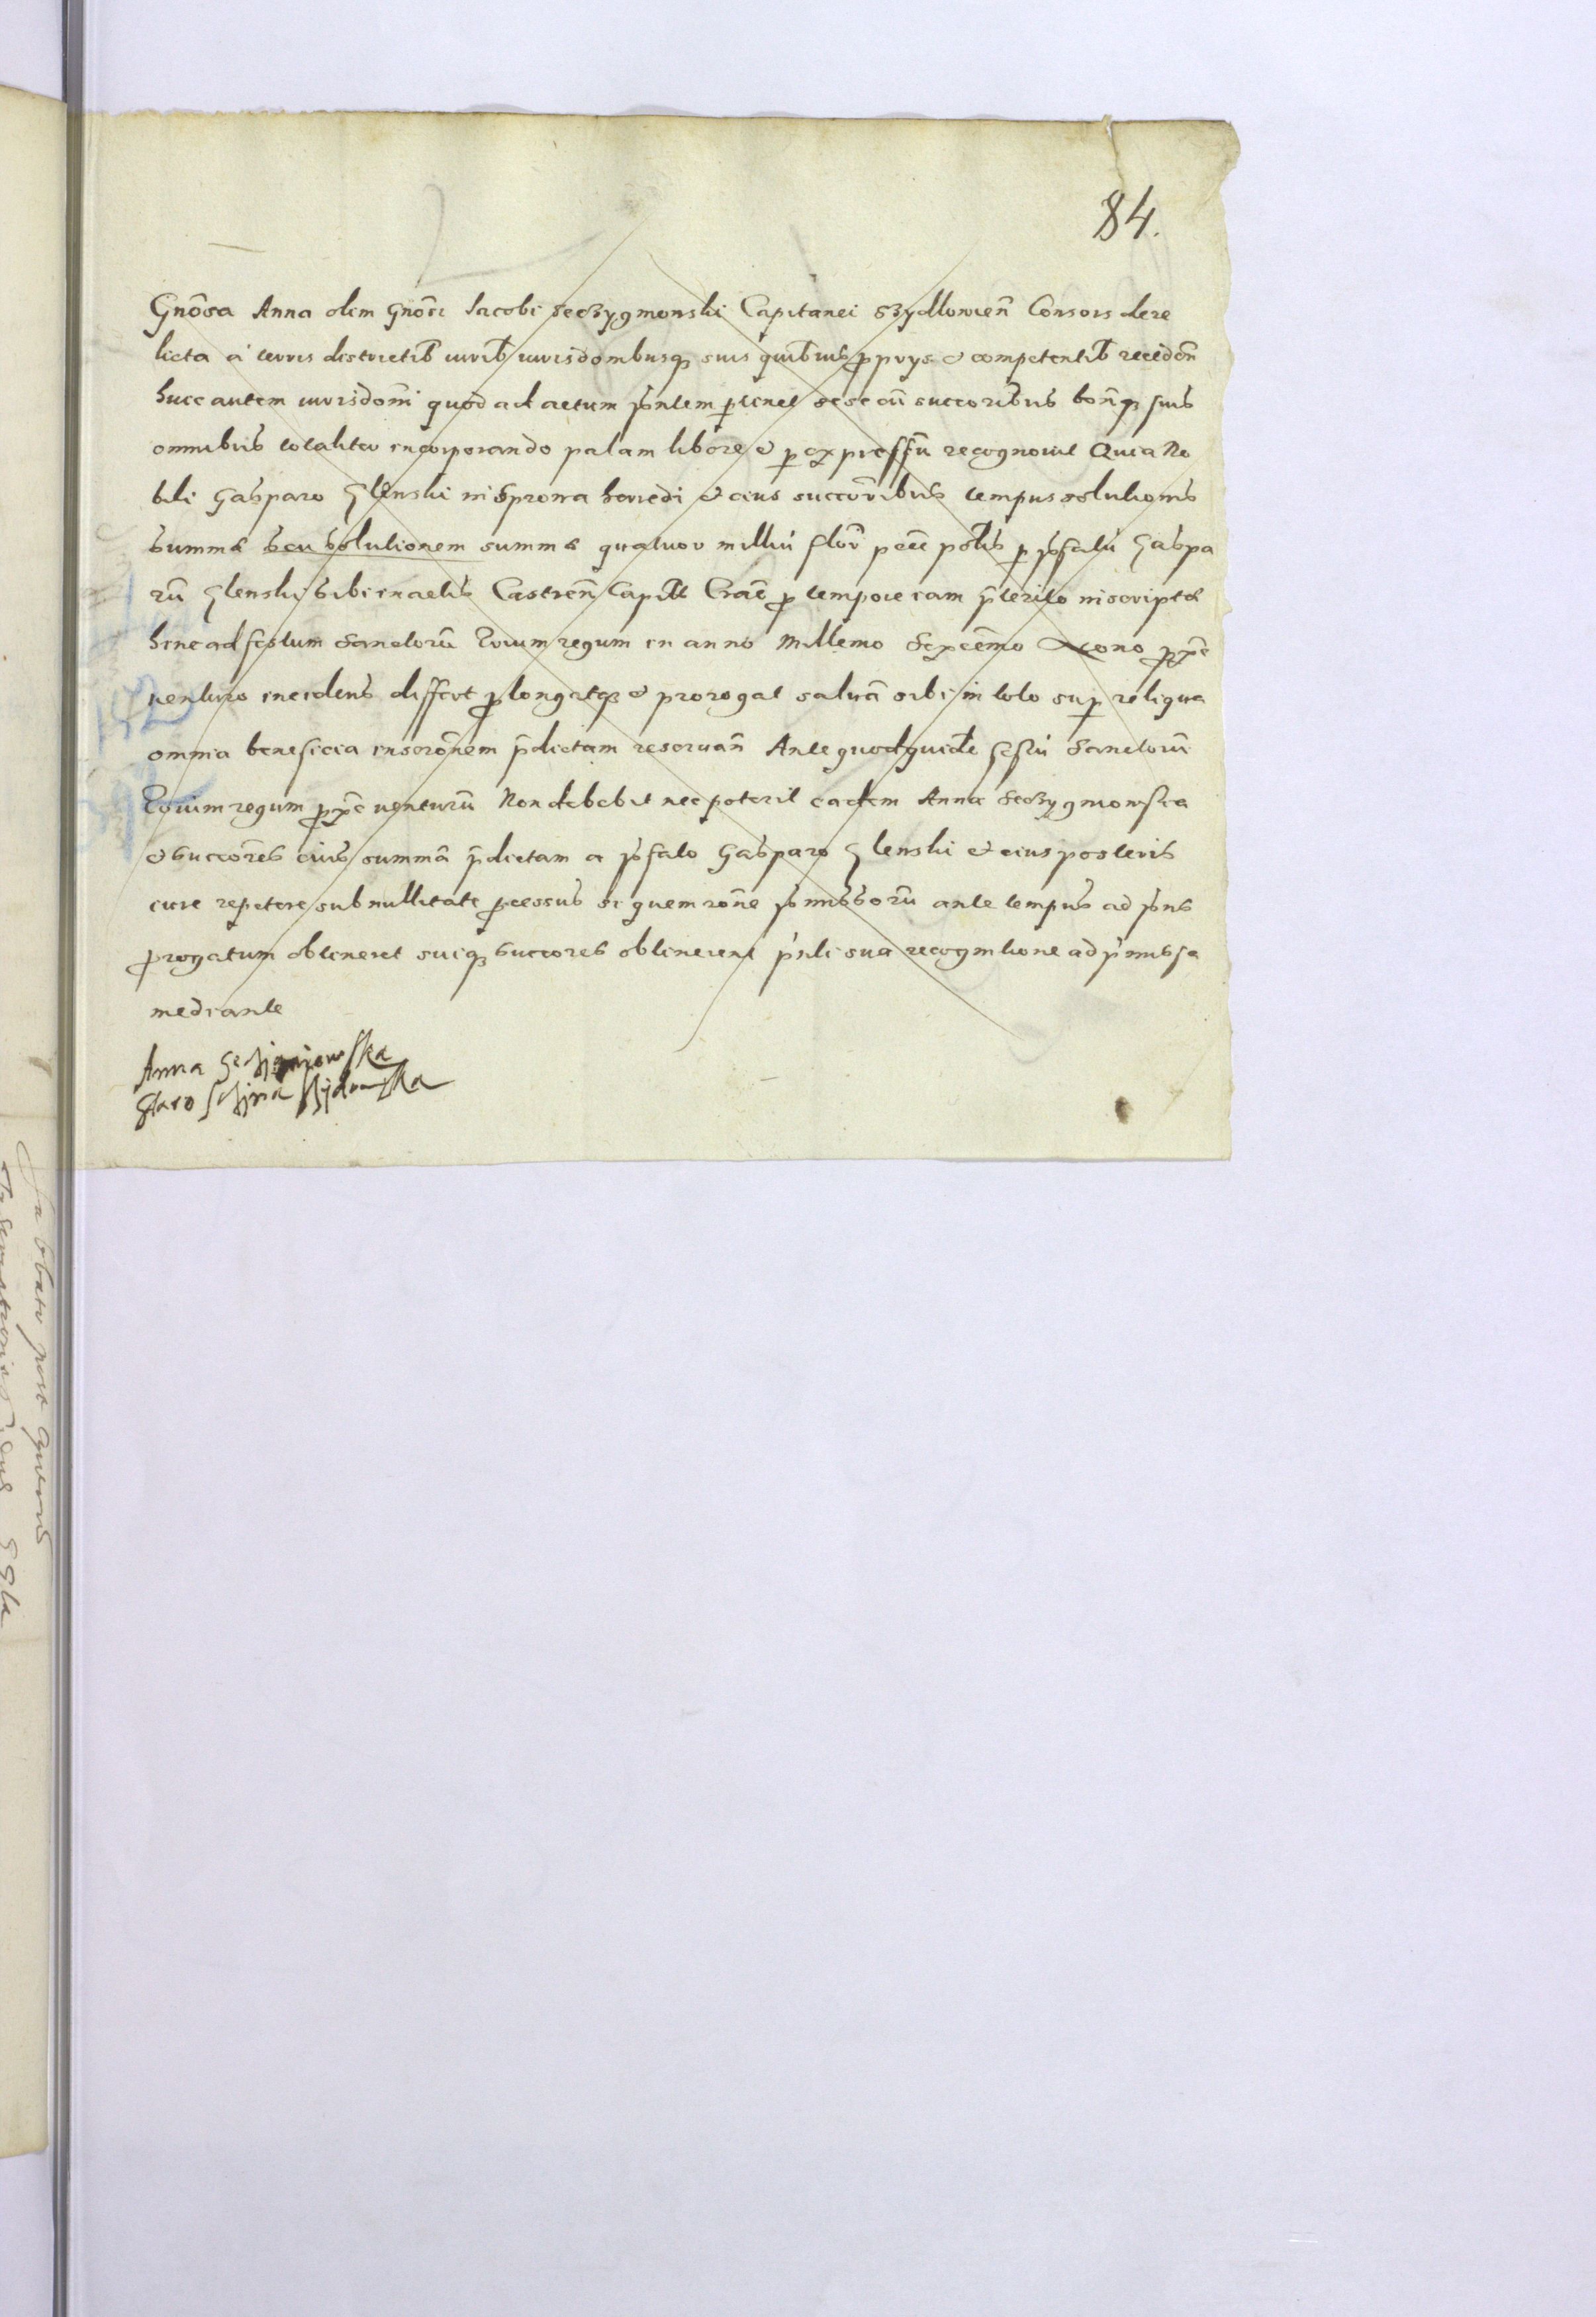 84.
Gnõsa Anna olim Gnõsi Iacobi Seczygmonski Capitanei Szydlowien̄ Consors dere
licta a terris districtib iurib iurisdõnibusq suis quibusuis propryis et competentib recedeñ
huic autem iurisdõni quod ad actum pñtem pertinet sese cũ succoribus boñq suis
omnibus totaliter incorporando palam libere et per expressũ recognovit Quia No
bili Gasparo Glenski in Sprowa heredi et eius succoribus tempus solutionis
summæ seu solutionem summæ quatuor milliũ flor̃ pecc̃ polis per pfatũ Gaspa
rũ Glenski sibi in actis Castreñ Capitt Crac̃ pro tempore iam p̃terito inscriptæ
hinc ad festum Sanctorũ Trium regum in anno Millemo Sexcẽmo proxẽ
venturo incidens differt prolongatqz et prorogat salvã sibi in toto super reliqua
omnia beneficia inscrõnem p̃dictam reservañ Ante quod quidẽ festũ Sanctorũ
Trium regum proxẽ venturũ Non debebit nec poterit eadem Anna Seczygniowska
et succores eius summã p̃dictam a pfato Gasparo Glenski et eius posteris
iure repetere sub nullitate processus si quem rõne pmissorũ ante tempus ad pñs
prorogatum obtineret suiq succores obtinerent pñti sua recognitione ad pmissa
mediante
Anna